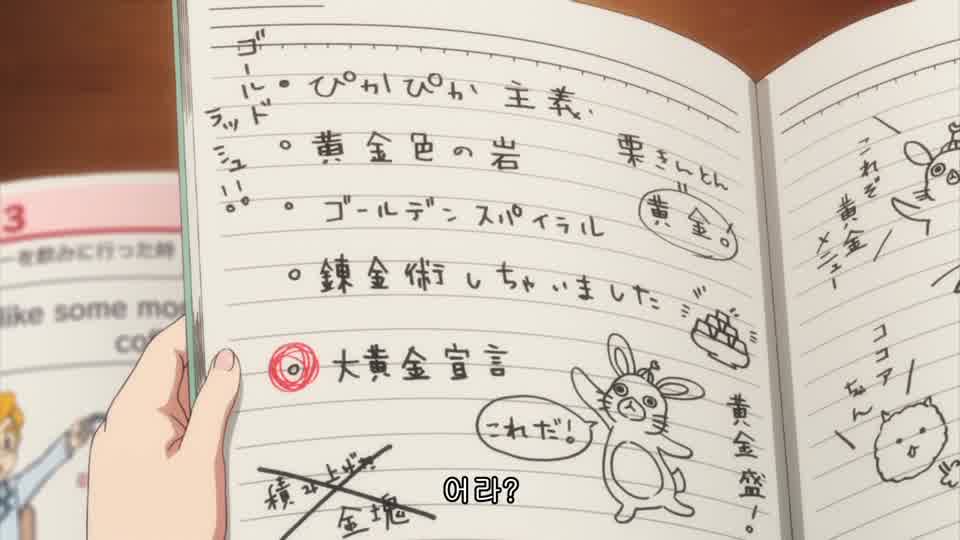 ゴールド
ラッシュ!!
・ぴかぴか主義、
・黄金色の岩
・ゴールデンスパイラル
・錬金術しちゃいました
大黄金宣言
栗きんとん
=
黄金。
これだ!
黄金盛!。
積み上げた
金塊
これぞ
黄金
メニュー
ココア
ちゃん
3
ーを飲みに行った時
like some mo
co
어라?